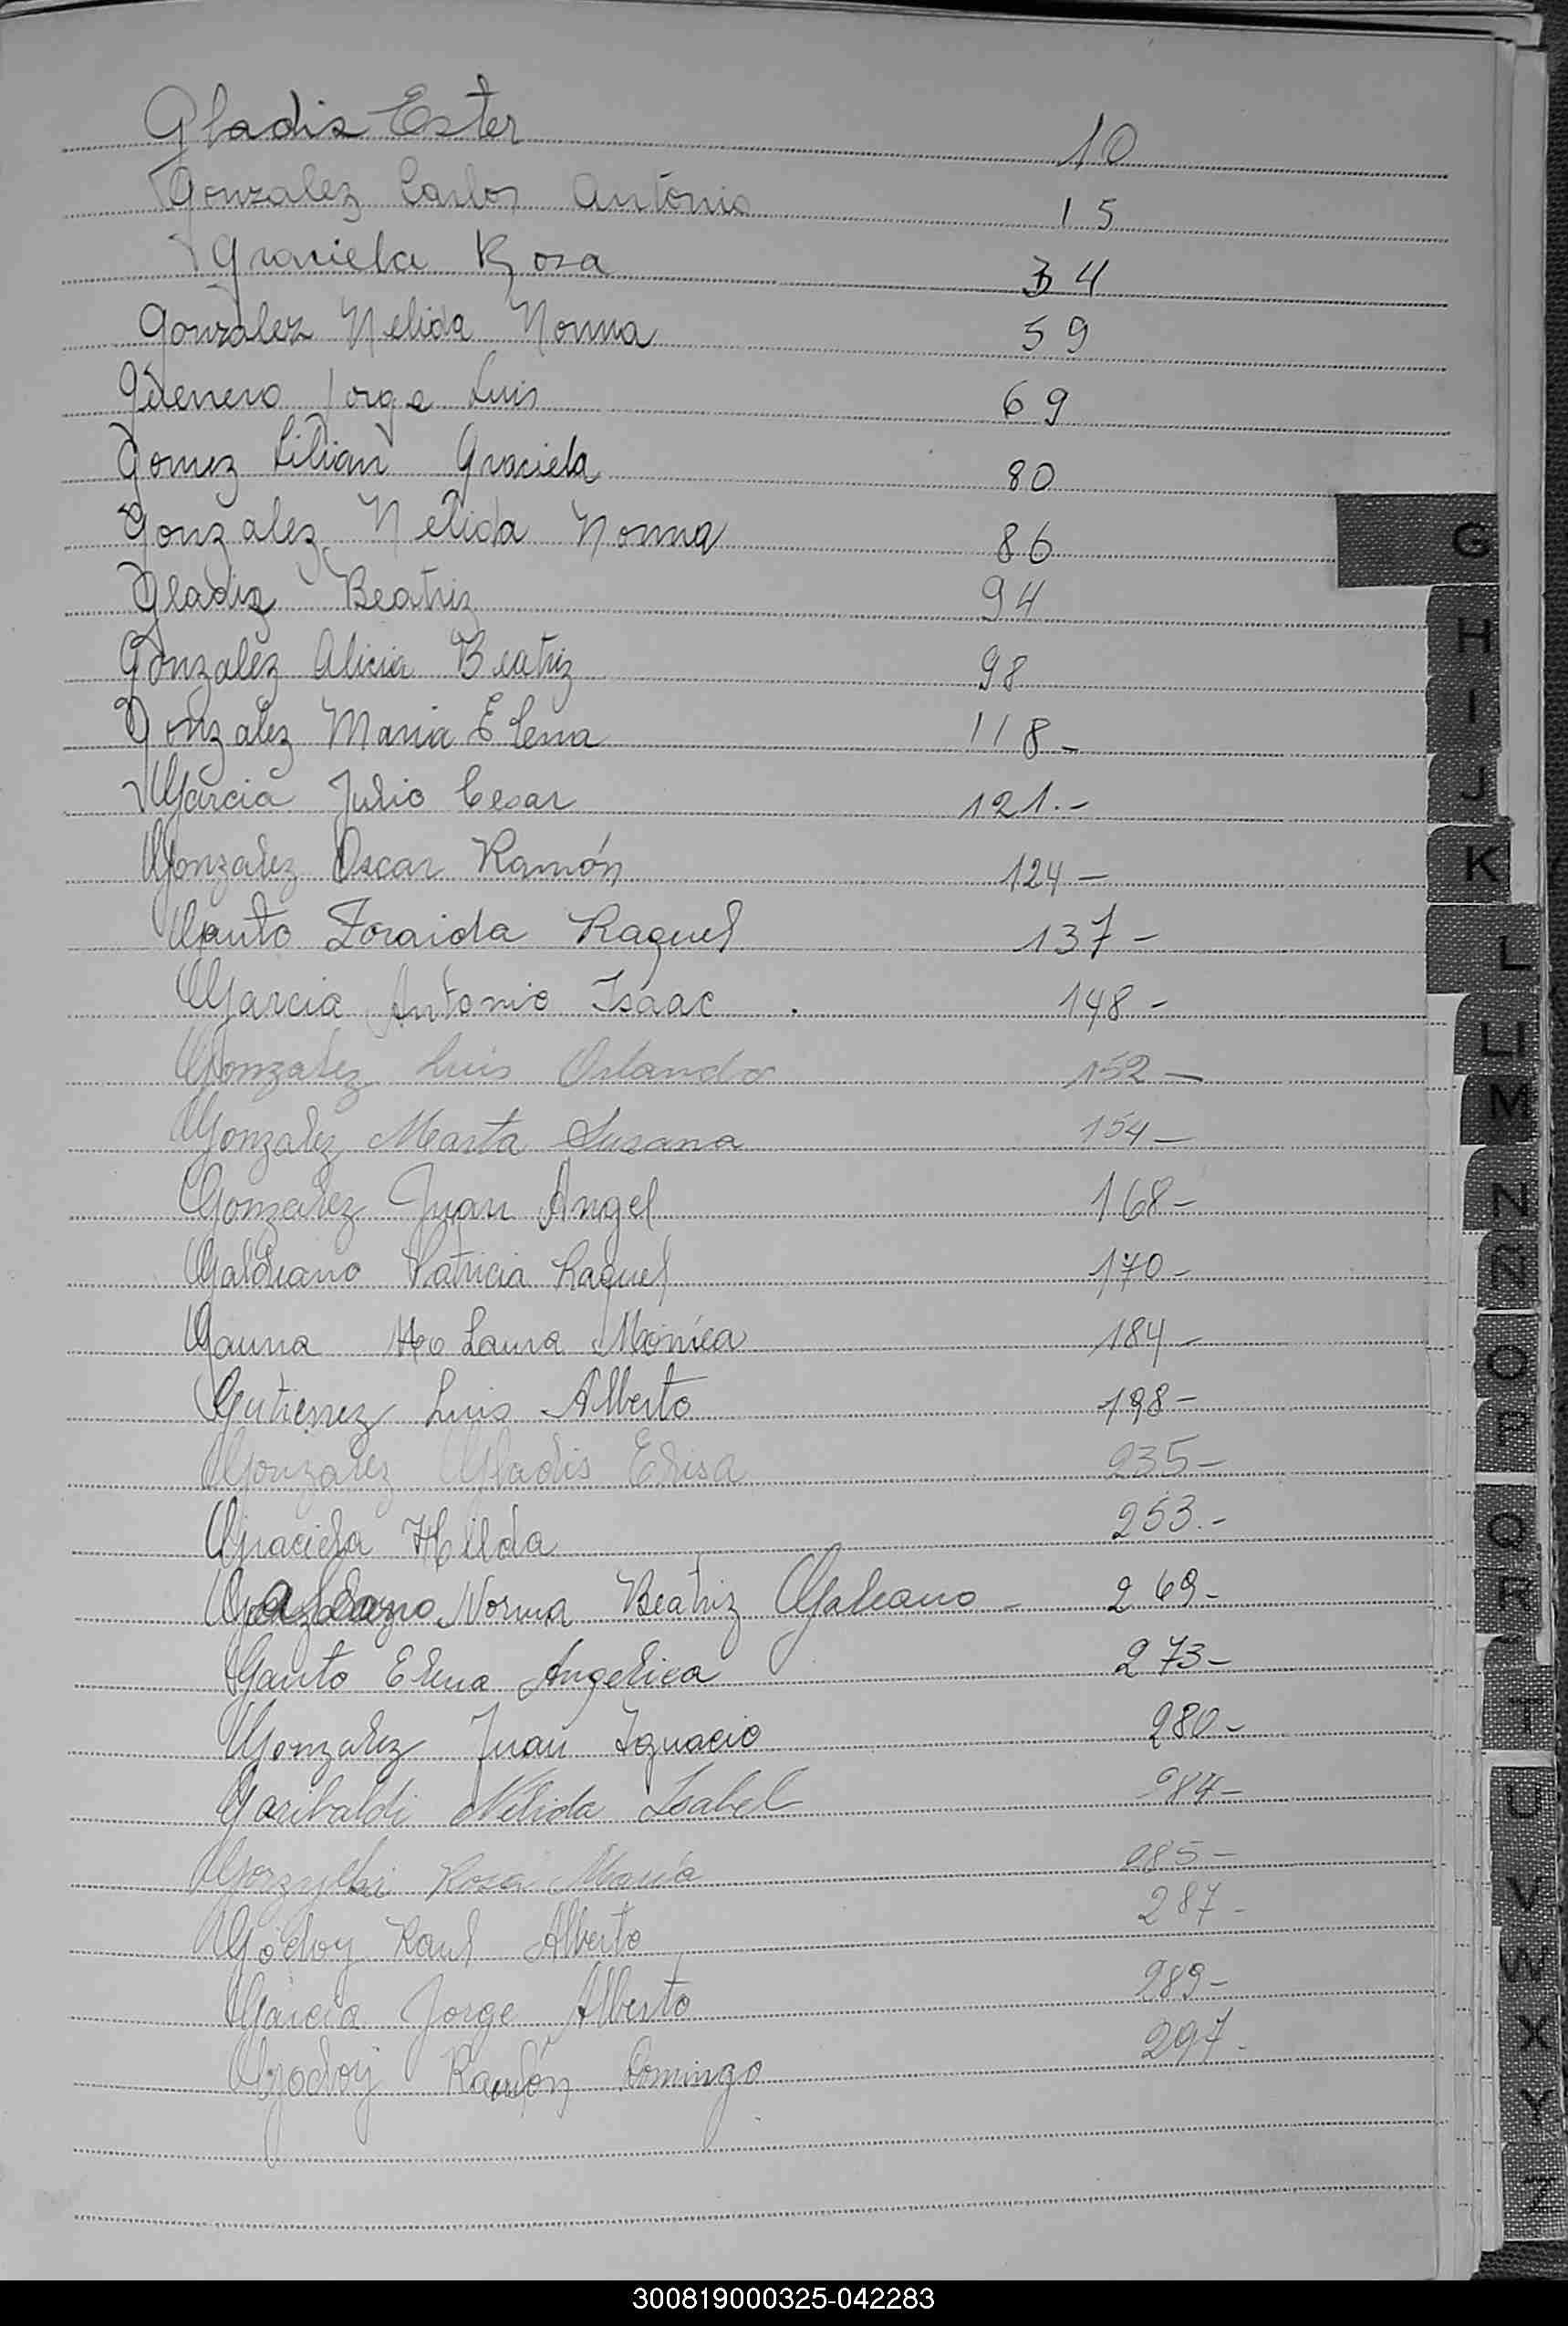 Gladis Ester 10
Gonzalez Carlos Antonio 15
Graciela Rosa 34
Gonzalez Nelida Norma 59
Guerrero Jorge Luis 69
Gomez Lilian Graciela 80
Gonzalez Nelida Norma 86
Gladis Beatriz 94
Gonzalez Alicia Beatriz 98
Gonzalez Maria Elena 118-
Garcia Julio Cesar 121.-
Gonzalez Oscar Ramón 124-
Gauto Zoraida Raquel 137-
Garcia Antonio Isaac 148-
Gonzalez Luis Orlando 152-
Gonzalez Marta Susana 154-
Gonzalez Juan Angel 168-
Galeano Patricia Raquel 170-
Gauna Laura Mónica 184-
Gutierrez Luis Alberto 198-
Gonzalez Gladis Elisa 235-
Graciela Hilda 253.-
Norma Beatriz Galeano - 269-
Gauto Elena Angelica 273-
Gonzalez Juan Ignacio 280-
Garibaldi Nélida Isabel 284-
Rosa Maria 285-
Godoy Raul Alberto 287-
Garcia Jorge Alberto 289-
Godoy Ramón Domingo 297-
G
H
I
J
K
L
LL
M
N
Ñ
O
P
Q
R
T
U
V
W
X
Y
Z
300819000325-042283